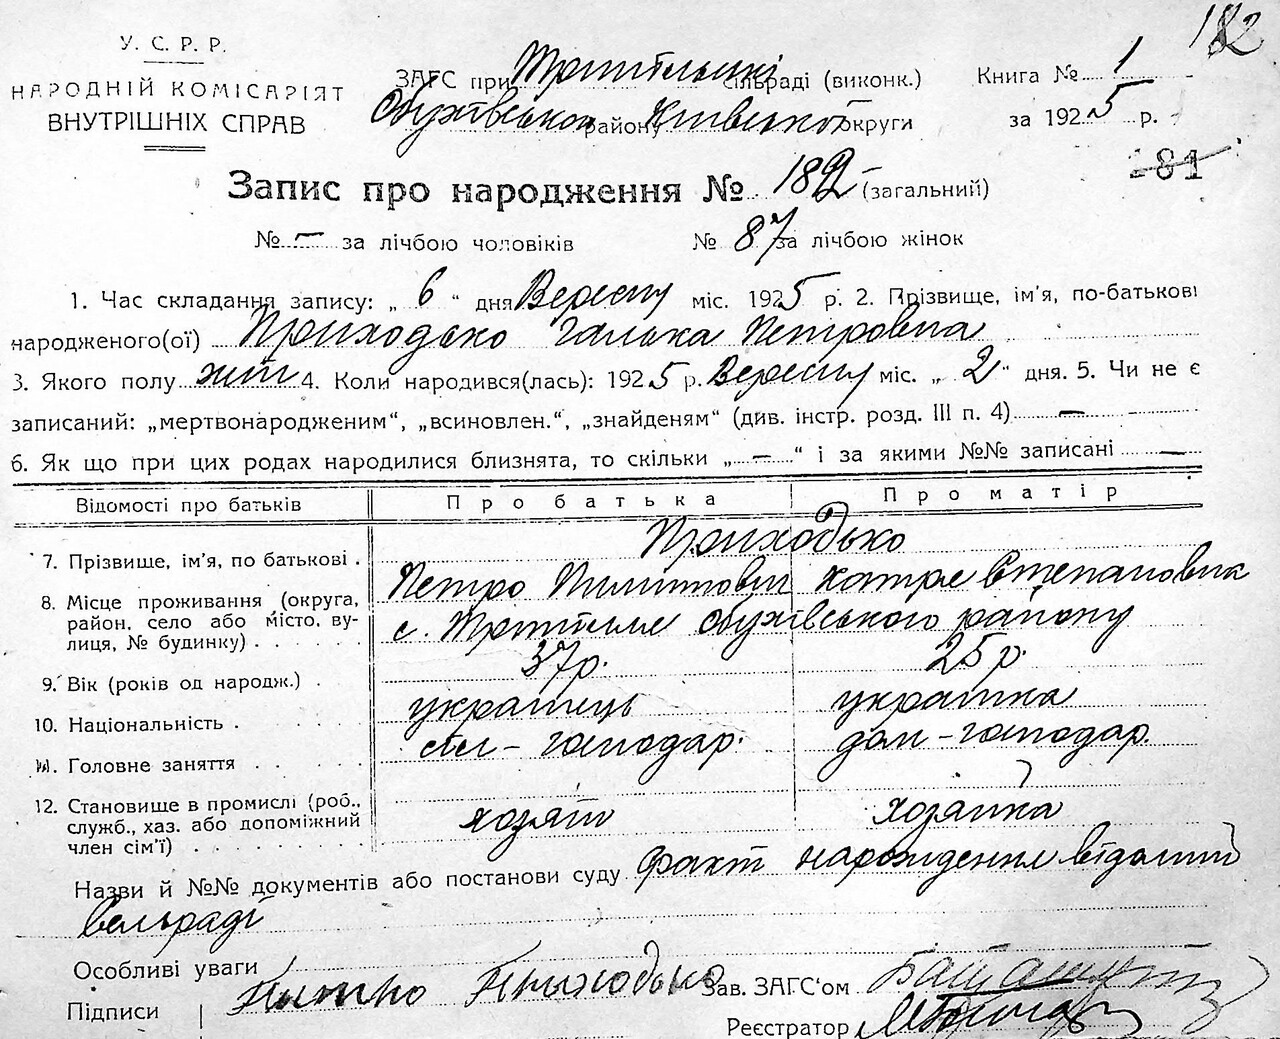 182
У. С. Р. Р.
НАРОДНІЙ КОМІСАРІЯТ
ВНУТРІШНІХ СПРАВ
ЗАГС при Трипільській сільраді (виконк.)
Обухівського району Київської округи
Книга № 1
за 1925 р.
181
Запис про народження № 182 (загальний)
№ – за лічбою чоловіків № 87 за лічбою жінок
1. Час складання запису: „ 6 “ дня Вересня міс. 1925 р. 2. Прізвище, ім'я, по-батькові
народженого(ої) Приходько Галька Петровна
3. Якого полу жін 4. Коли народився(лась): 1925 р. Вересня міс. „ 2 “ дня. 5. Чи не є
записаний: „мертвонародженим“, „всиновлен.“, „знайденям“ (див. інстр. розд. III п. 4) –
6. Як що при цих родах народилися близнята, то скільки „ – “ і за якими №№ записані –
Відомості про батьків Про батька Про матір
Приходько
7. Прізвище, ім'я, по батькові . Петро Пилипович Хотря Степановна
8. Місце проживання (округа, район, село або місто, вулиця, № будинку) с. Трипілля Обухівського району
9. Вік (років од народж.) . 37 р. 25 р.
10. Національність . українець українка
11. Головне заняття сіл – господар. дом – господар.
12. Становище в промислі (роб.,
служб., хаз. або допоміжний хозяїн хозяйка
член сім'ї)
Назви й №№ документів або постанови суду факт народження відомий
сельраді
Особливі уваги
Підписи Петро Приходько Зав. ЗАГС'ом
Реєстратор